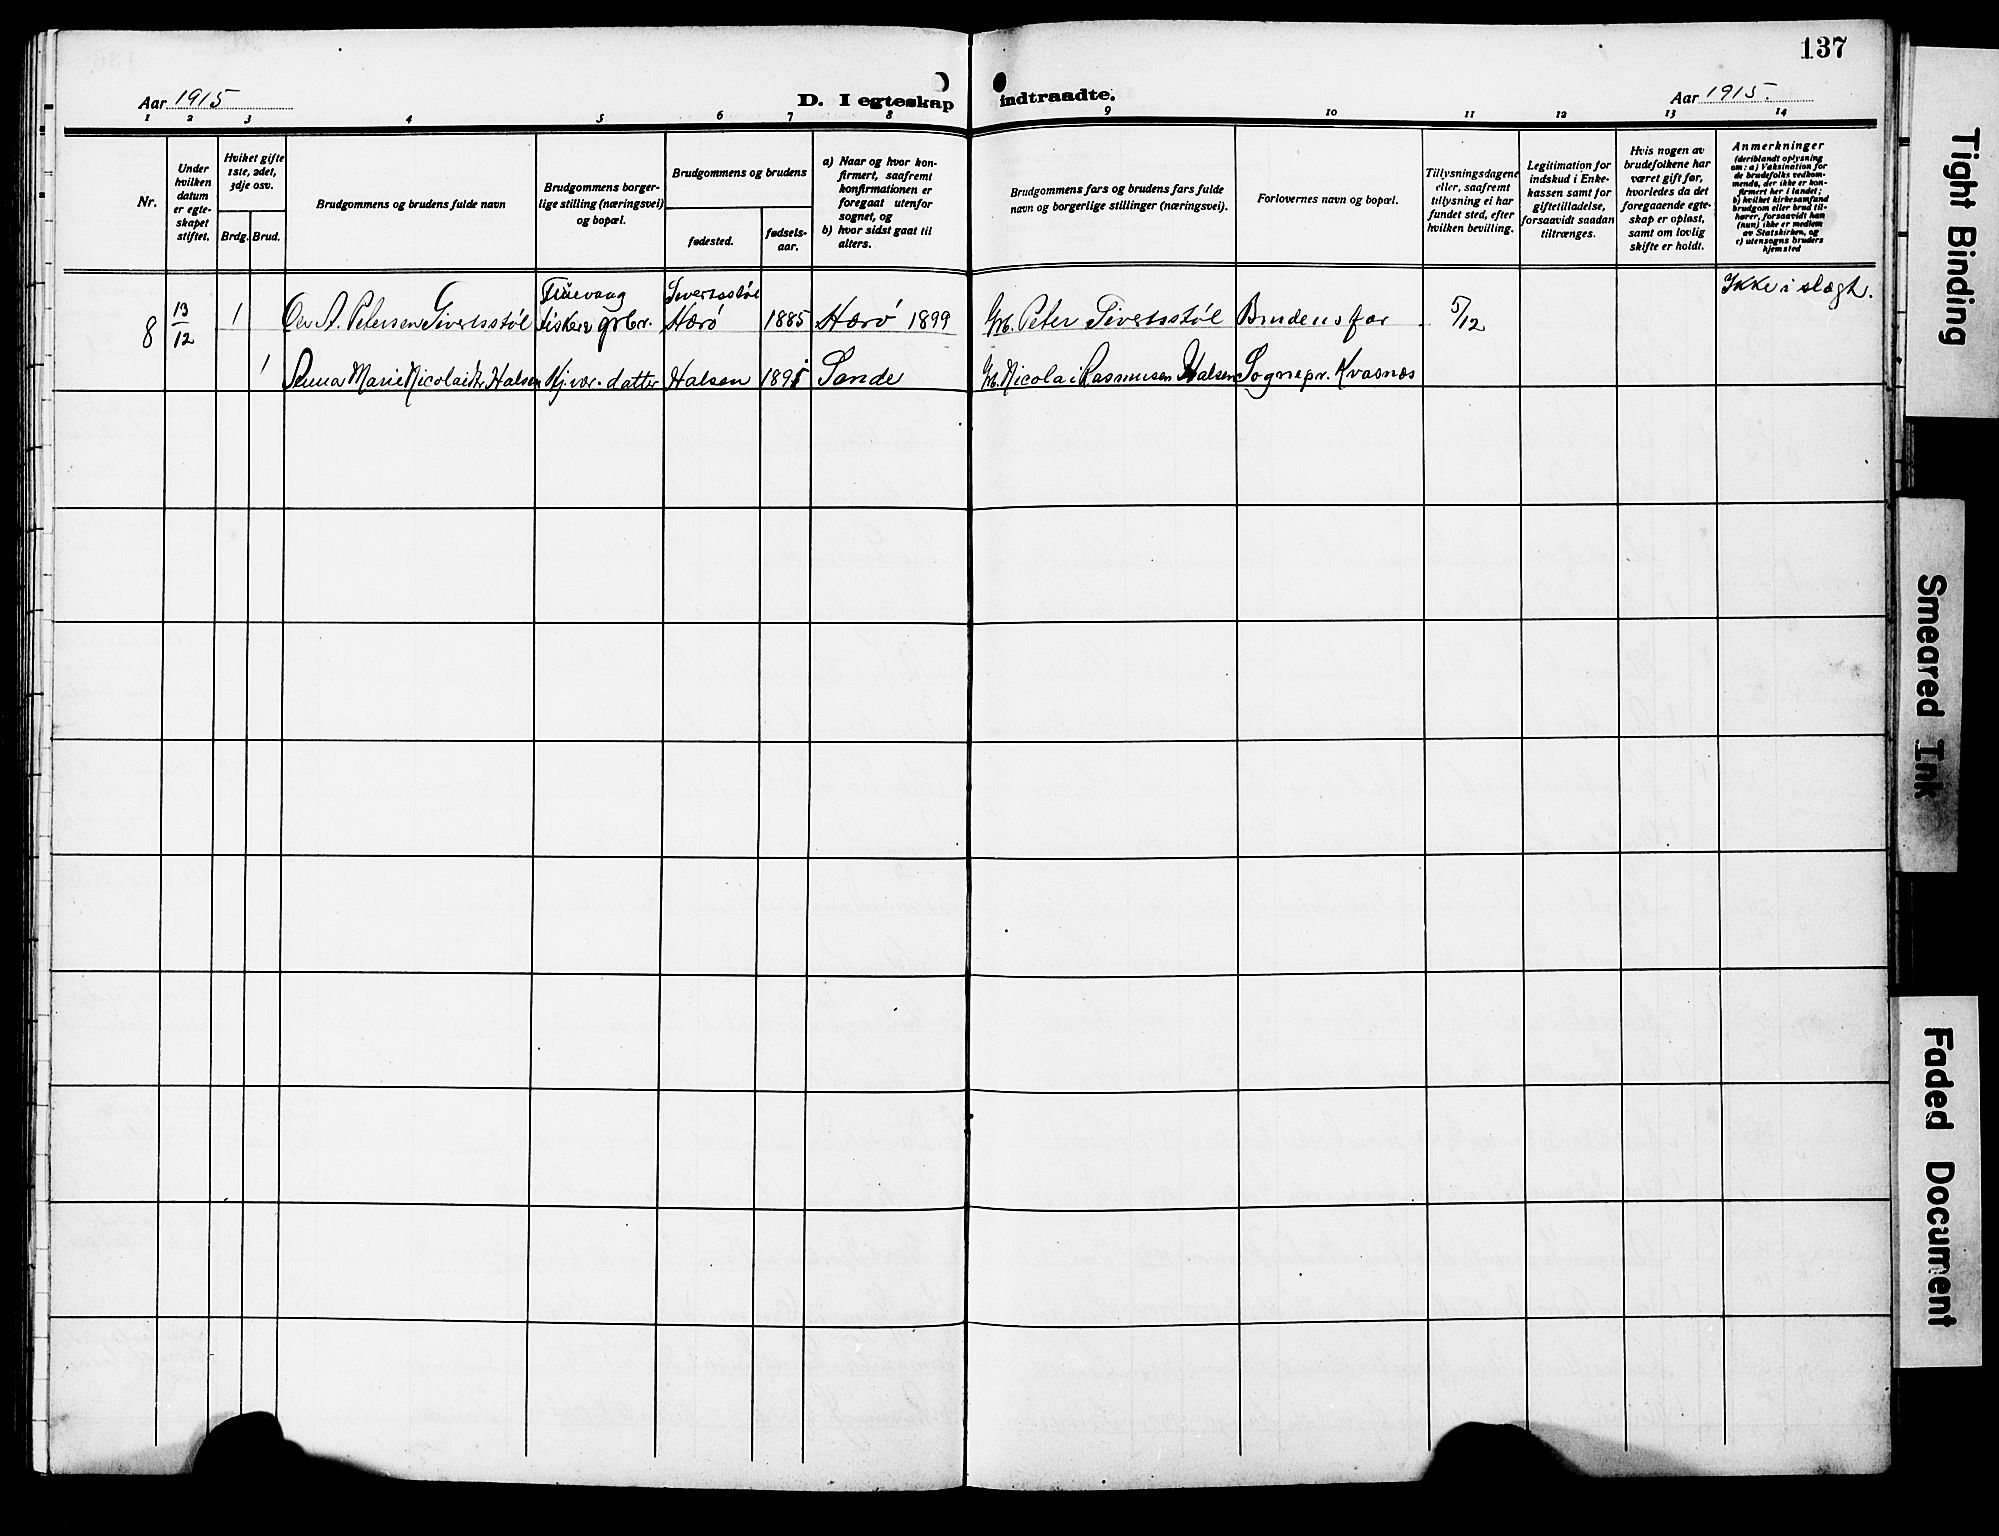 137
Aar 1915
D. I egteskap
indtraadte.
Aar 1915.
1 2 3 4 5 6 7 8 9 10 11 12 13 14
Nr.
Under
hvilken
datum
er egte-
skapet
stiftet.
Hviket gifte
1ste, 2det,
3dje osv.
Brdg. Brud.
Brudgommens og brudens fulde navn
Brudgommens borger-
lige stilling (næringsvei)
og bopæl.
Brudgommens og brudens
fødested.
fødsels-
aar.
a) Naar og hvor kon-
firmert, saafremt
konfirmationen er
foregaat utenfor
sognet, og
b) hvor sidst gaat til
alters.
Brudgommens fars og brudens fars fulde
navn og borgerlige stillinger (næringsvei).
Forlovernes navn og bopæl.
Tillysningsdagene
eller, saafremt
tillysning ei har
fundet sted, efter
hvilken bevilling.
Legitimation for
indskud i Enke-
kassen samt for
giftetilladelse,
forsaavidt saadan
tiltrænges.
Hvis nogen av
brudefolkene har
været gift før,
hvorledes da det
foregaaende egte-
skap er opløst,
samt om lovlig
skifte er holdt.
Anmerkninger
(deriblandt oplysning
om: a) Vaksination for
de brudefolks vedkom-
mende, der ikke er kon-
firmert her i landet;
b) hvilket kirkesamfund
brudgom eller brud til-
hører, forsaavidt han
(hun) ikke er medlem
av Statskirken, og
c) utensogns bruders
hjemsted
8
13/12
1
Petersen Sivertsstøl
Fisker
Sivertsstøl
Herø
1885
Herø 1899
Grb. Peter Sivertsstøl
Brudens far
5/12
Ikke i slægt.
1
Marie Nicolaidtr. Halsen
datter
Halsen
1891
Sande
Grb. Nicolai Rasmusen Halsen
Sognepr. Kvasnes
Tight Binding
Smeared Ink
Faded Document